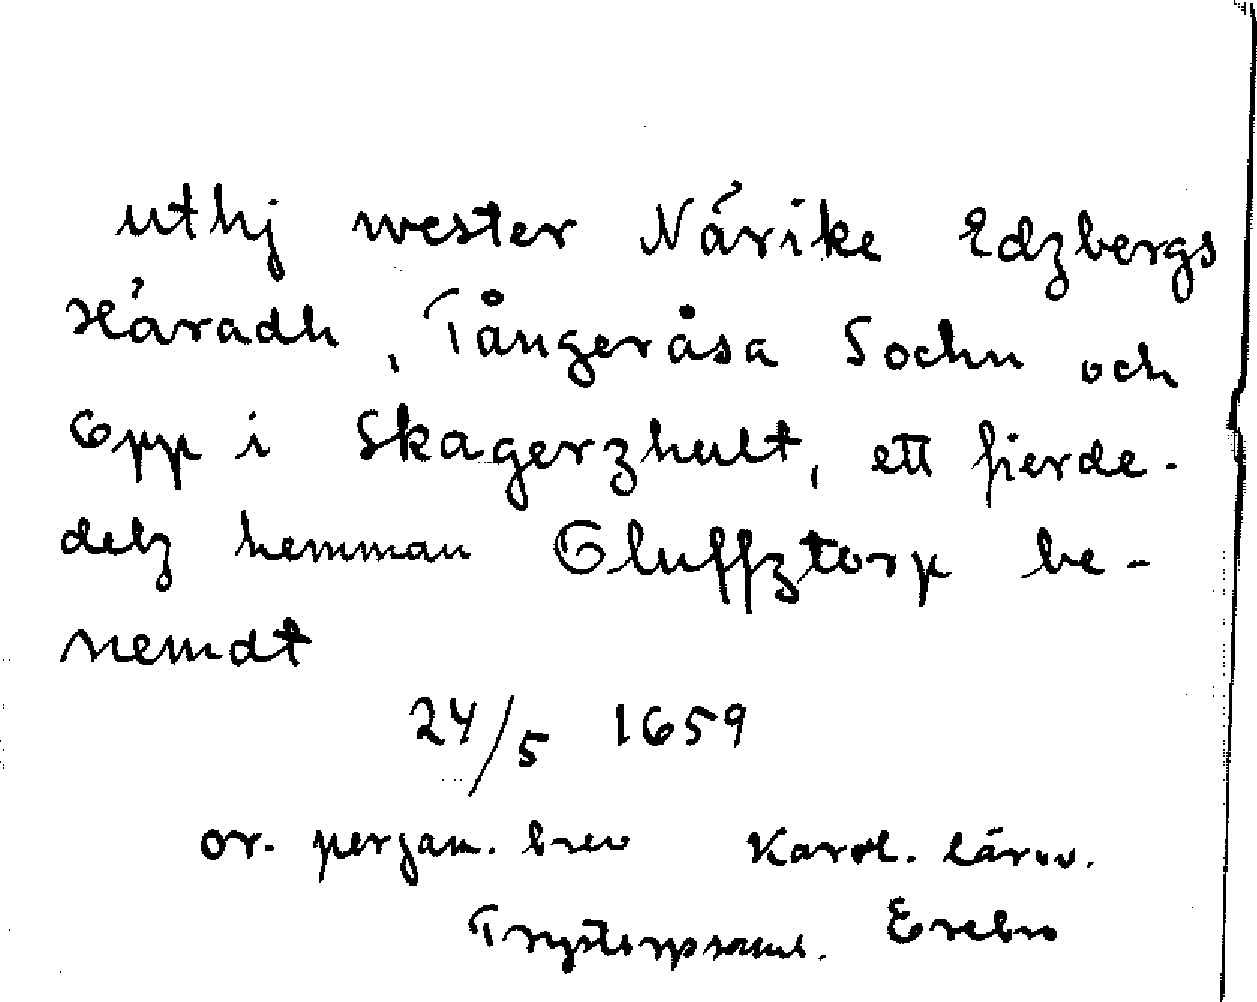 uthj wester Närike Edzbergs
Häradh, Tångeråsa Sochn och
Opp i Skagerzhult, ett fierde-
delz hemman Oluffztorp be-
nemdt
24/5 1659
or. pergam. brev Karol. lärov.
Trystorpsaml. Örebro